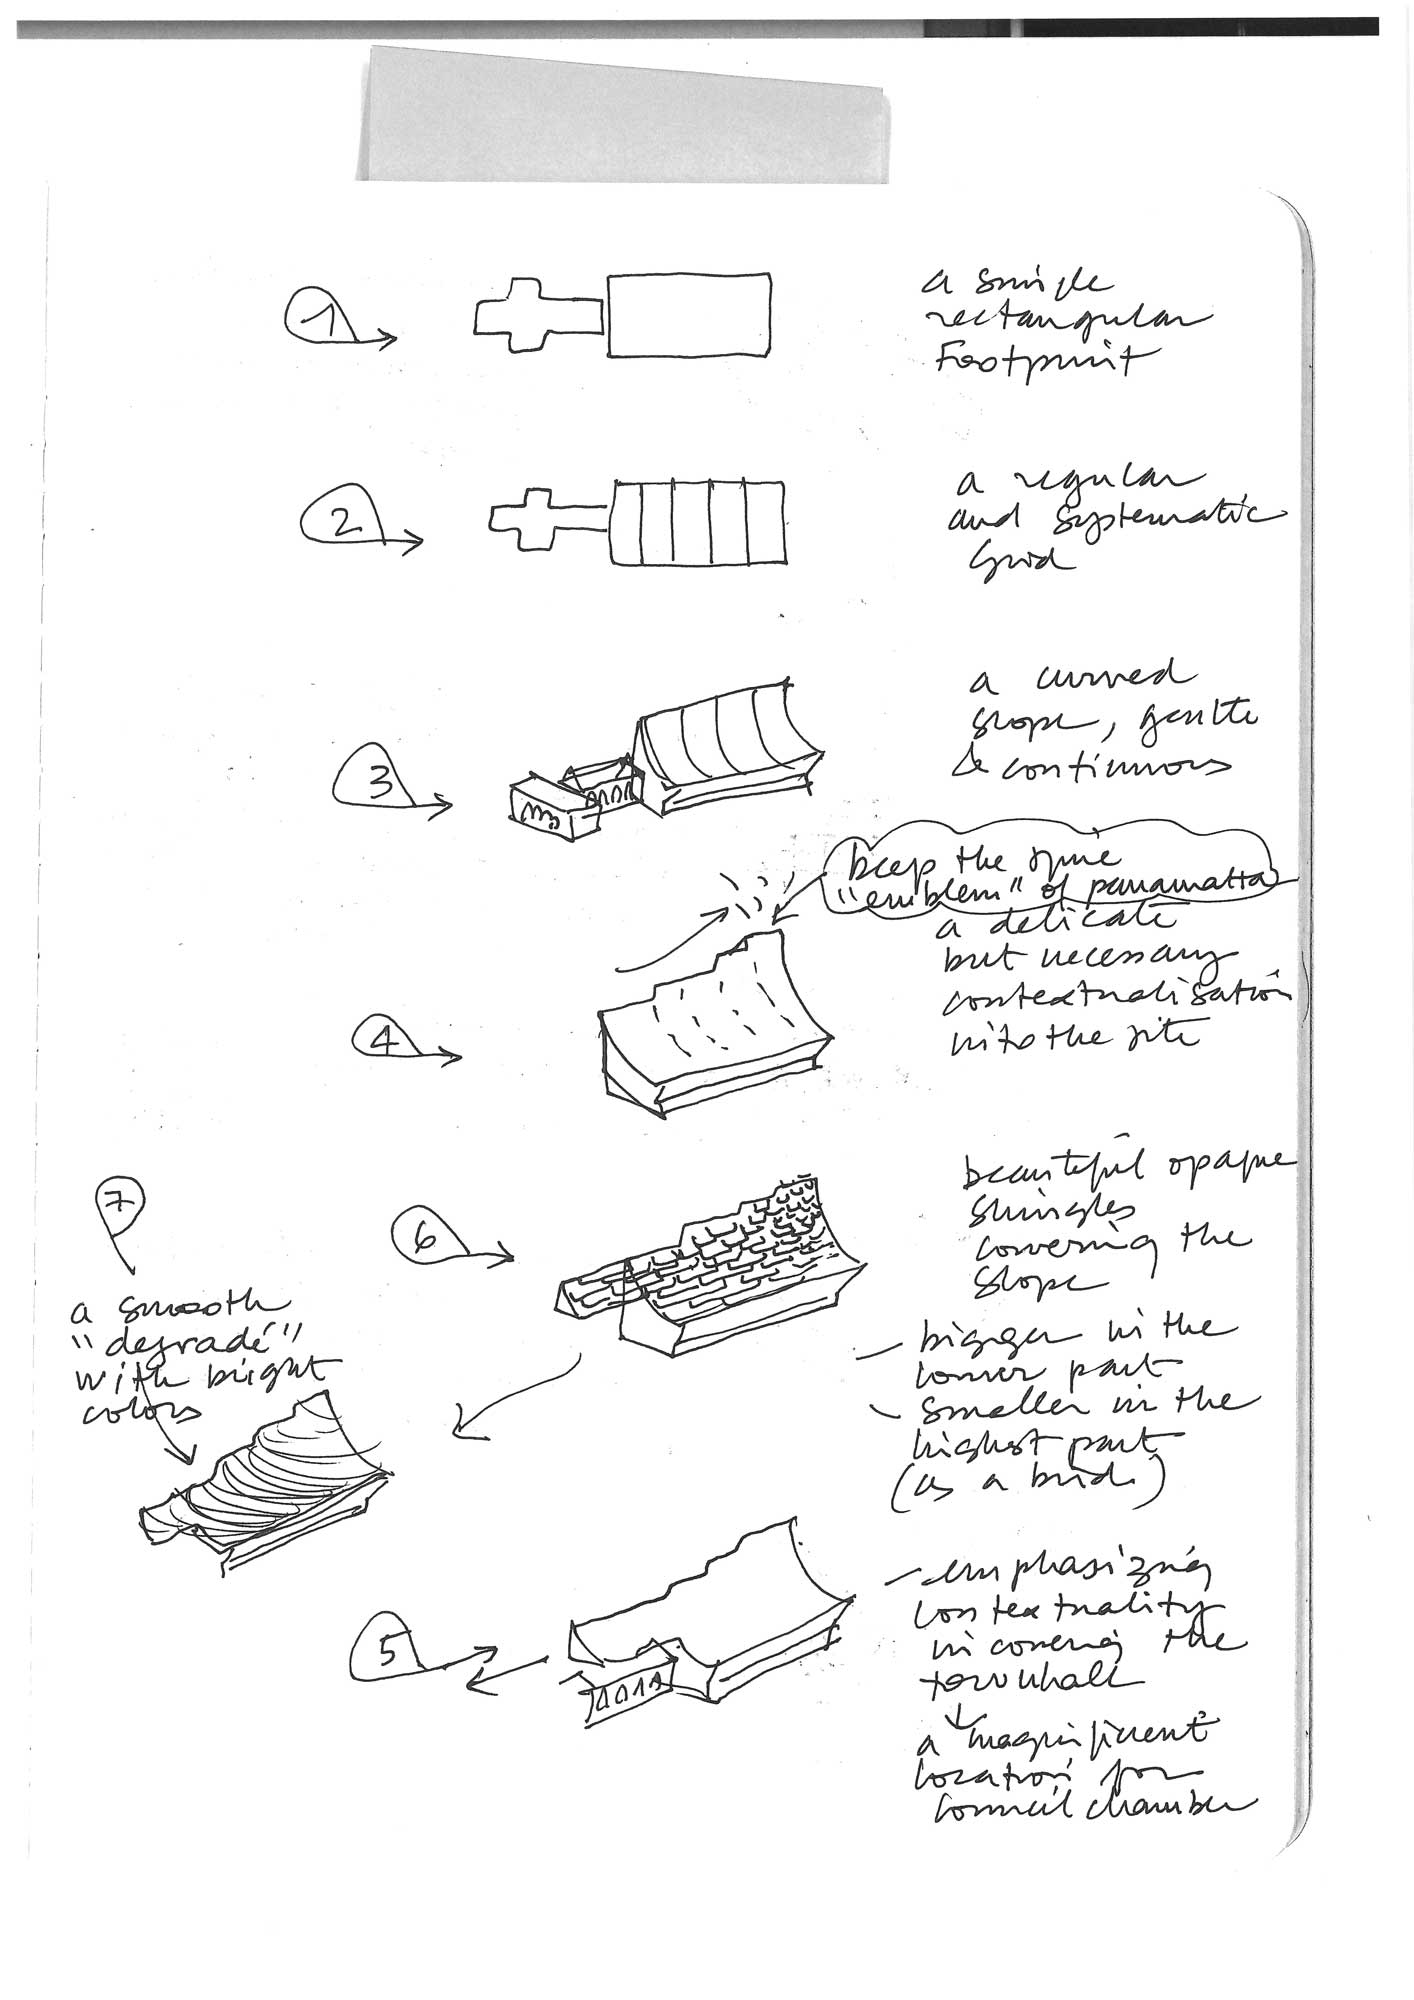 1
a simple
rectangular
Footprint
2
a regular
and systematic
Grid
3
a curved
slope, gentle
& continuous
keep the spine
"emblem" of parramatta
4
a delicate
but necessary
contextualisation
into the site
7
a smooth
"degradé"
with bright
colors
6
beautiful opaque
shingles
covering the
slope
- bigger in the
lower part
- smaller in the
highest part
(as a bird.)
5
- emphasizing
contextuality
in covering the
townhall
a magnificent
location for
council chamber